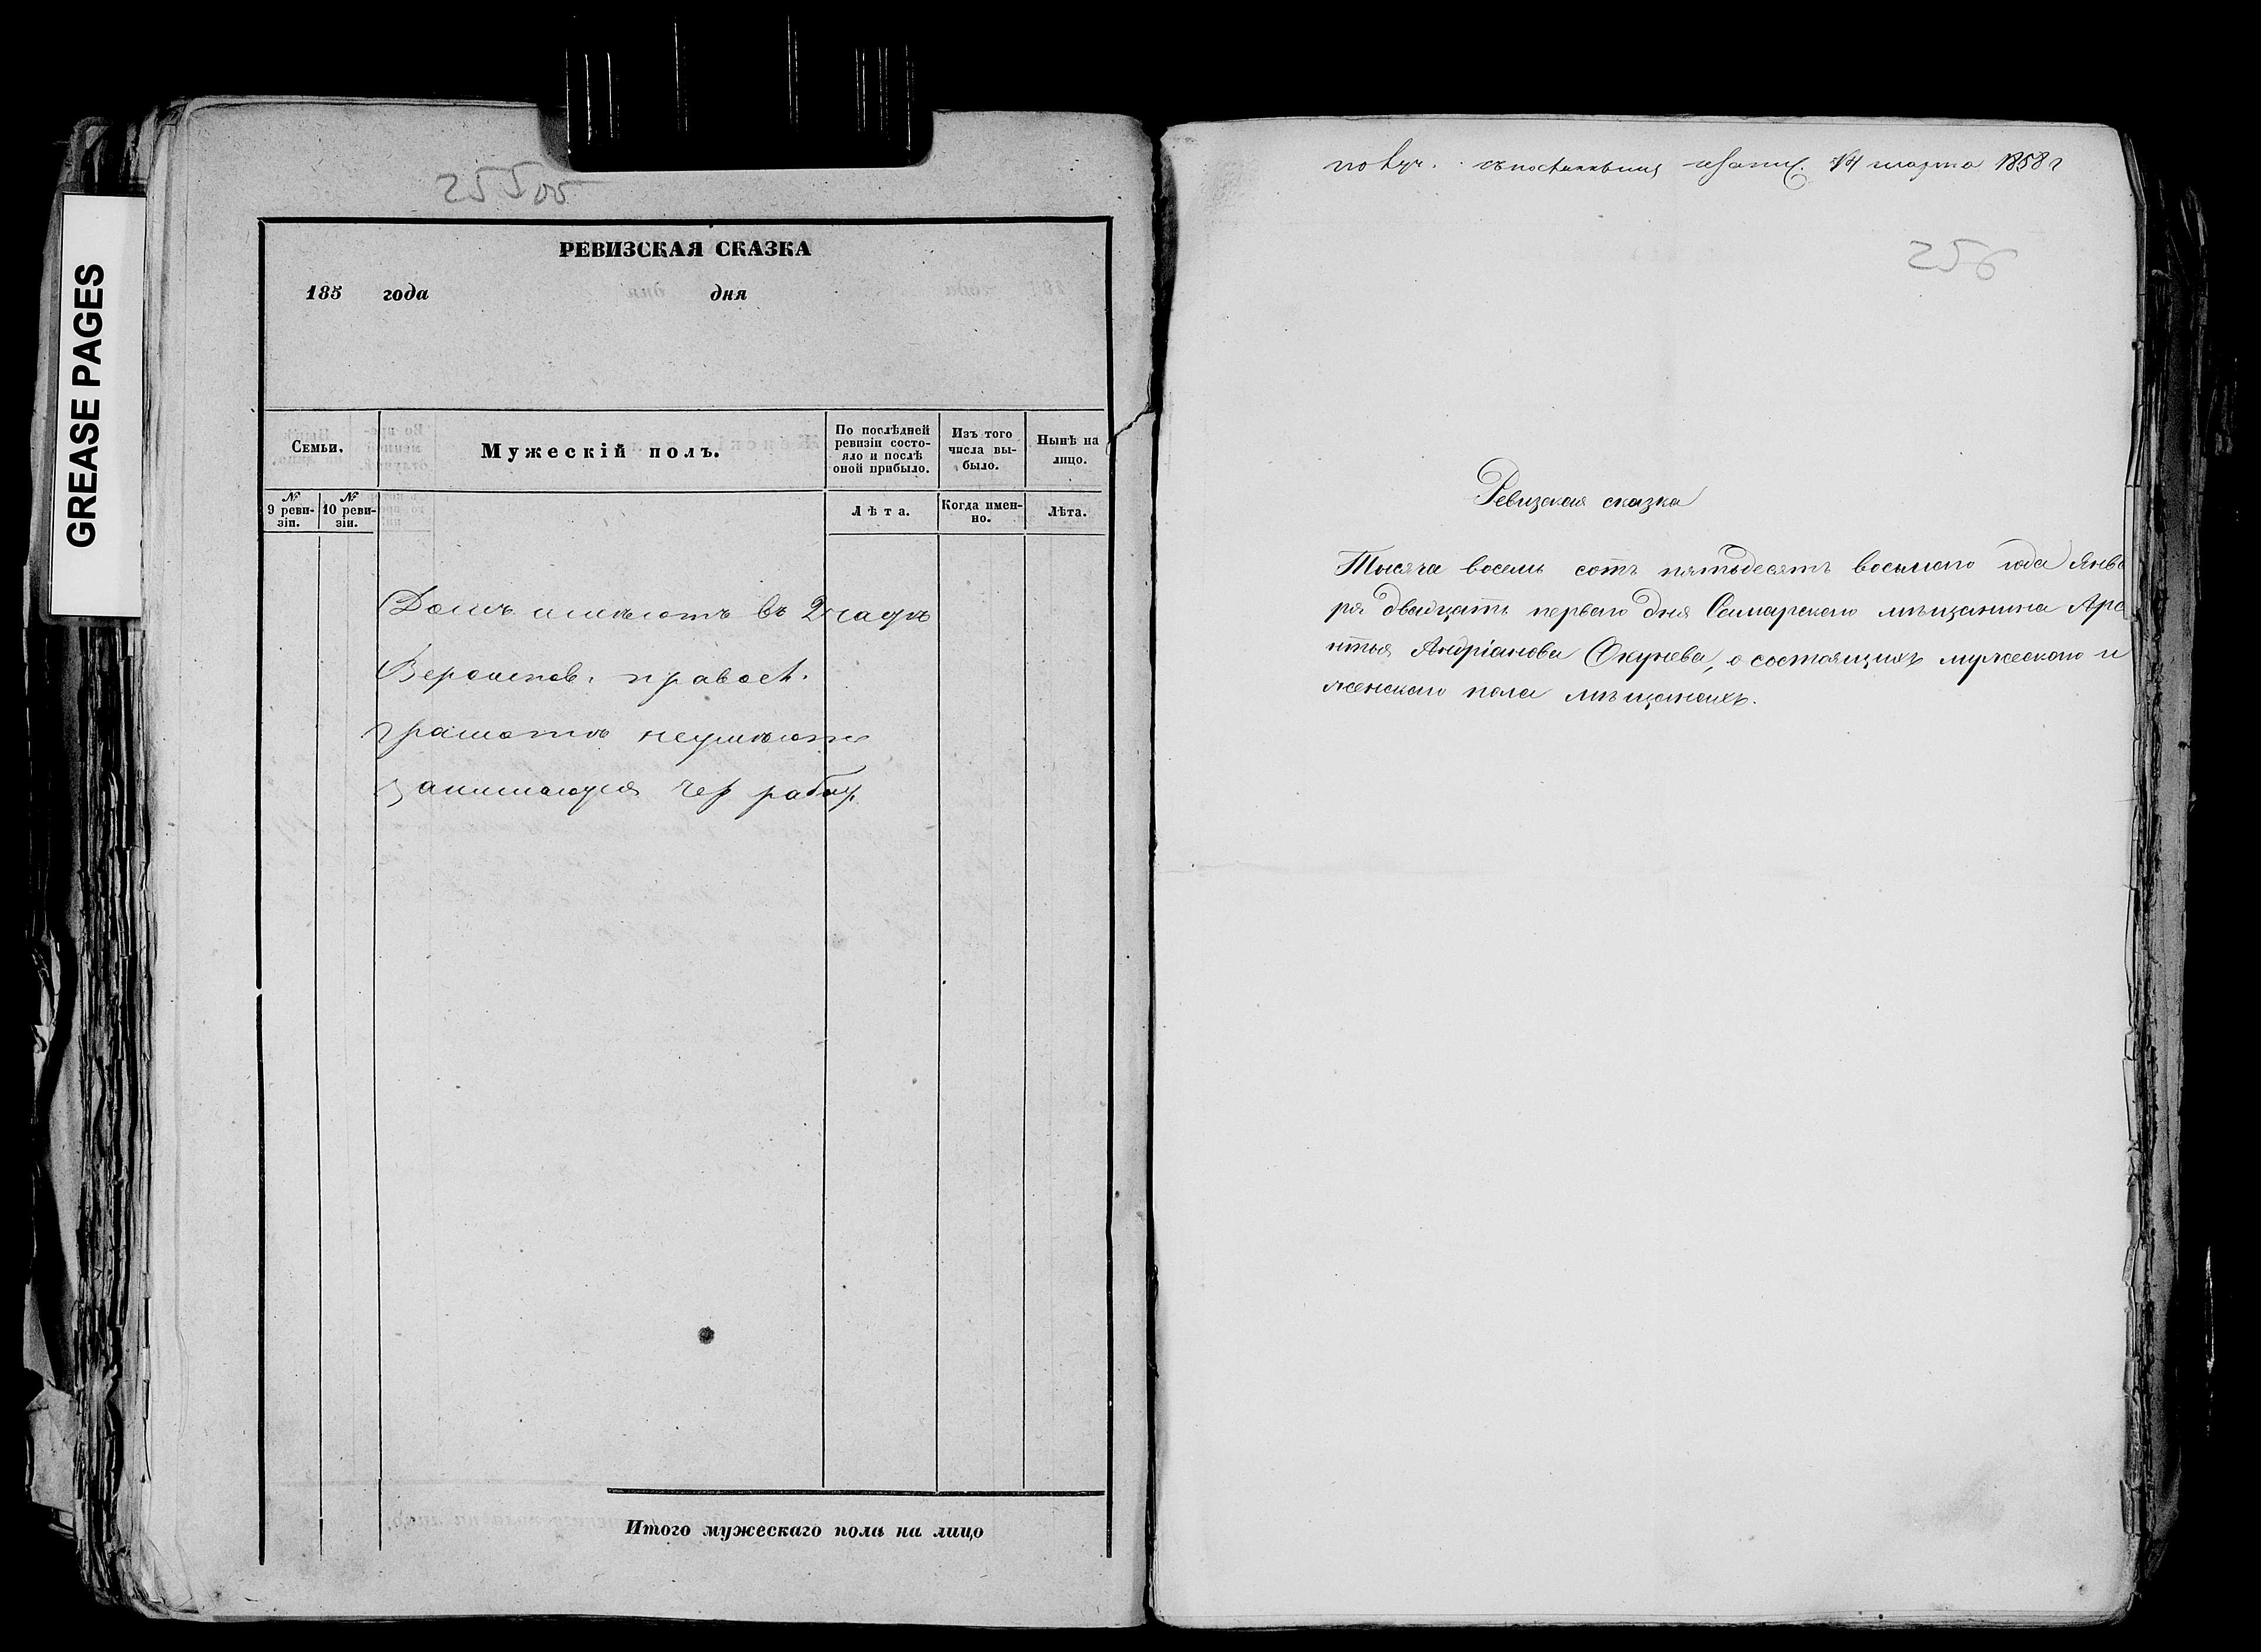 GREASE PAGES
255об
РЕВИЗСКАЯ СКАЗКА
185 года дня
Семьи.
Мужескій полъ.
По послѣдней ревизіи состояло и послѣ оной прибыло.
Изъ того числа выбыло.
Нынѣ на лицо.
№ 9 ревизіи.
№ 10 ревизіи.
Лѣта.
Когда именно.
Лѣта.
Домъ имѣютъ въ 2 част
Вероиспов. правосл.
грамотѣ неумѣютъ
занимаются чер работ.
Итого мужескаго пола на лицо
получ. марта 1858 г
256
Ревизская сказка
Тысяча восемь сотъ пятьдесятъ восьмого года Янва
ря двадцать первого дня Самарского мѣщанина Арс
нтья Андріанова Окунева, о состоящихъ мужеского и
женскаго пола мѣщанахъ.